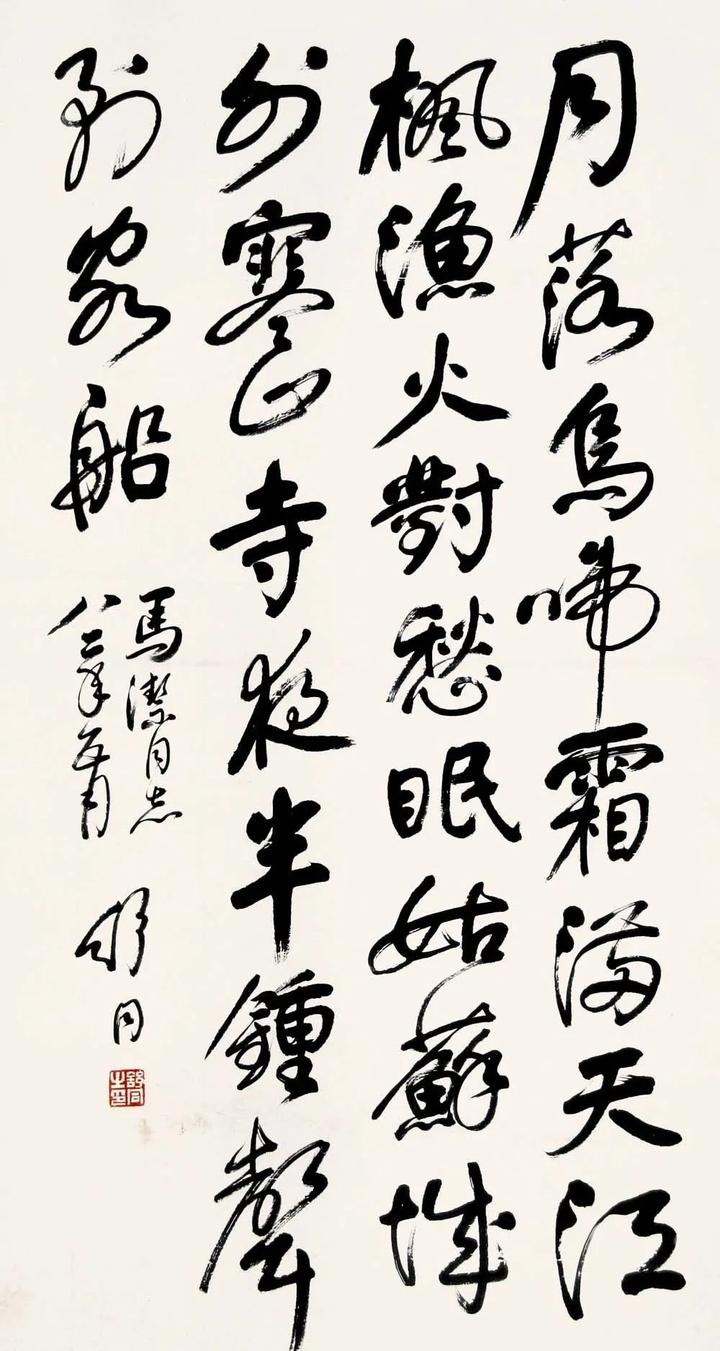 月落烏啼霜滿天江
楓漁火對愁眠姑蘇城
外寒山寺夜半鍾聲
到客船
馬潔同志
八二年五月
舒同
舒同之印